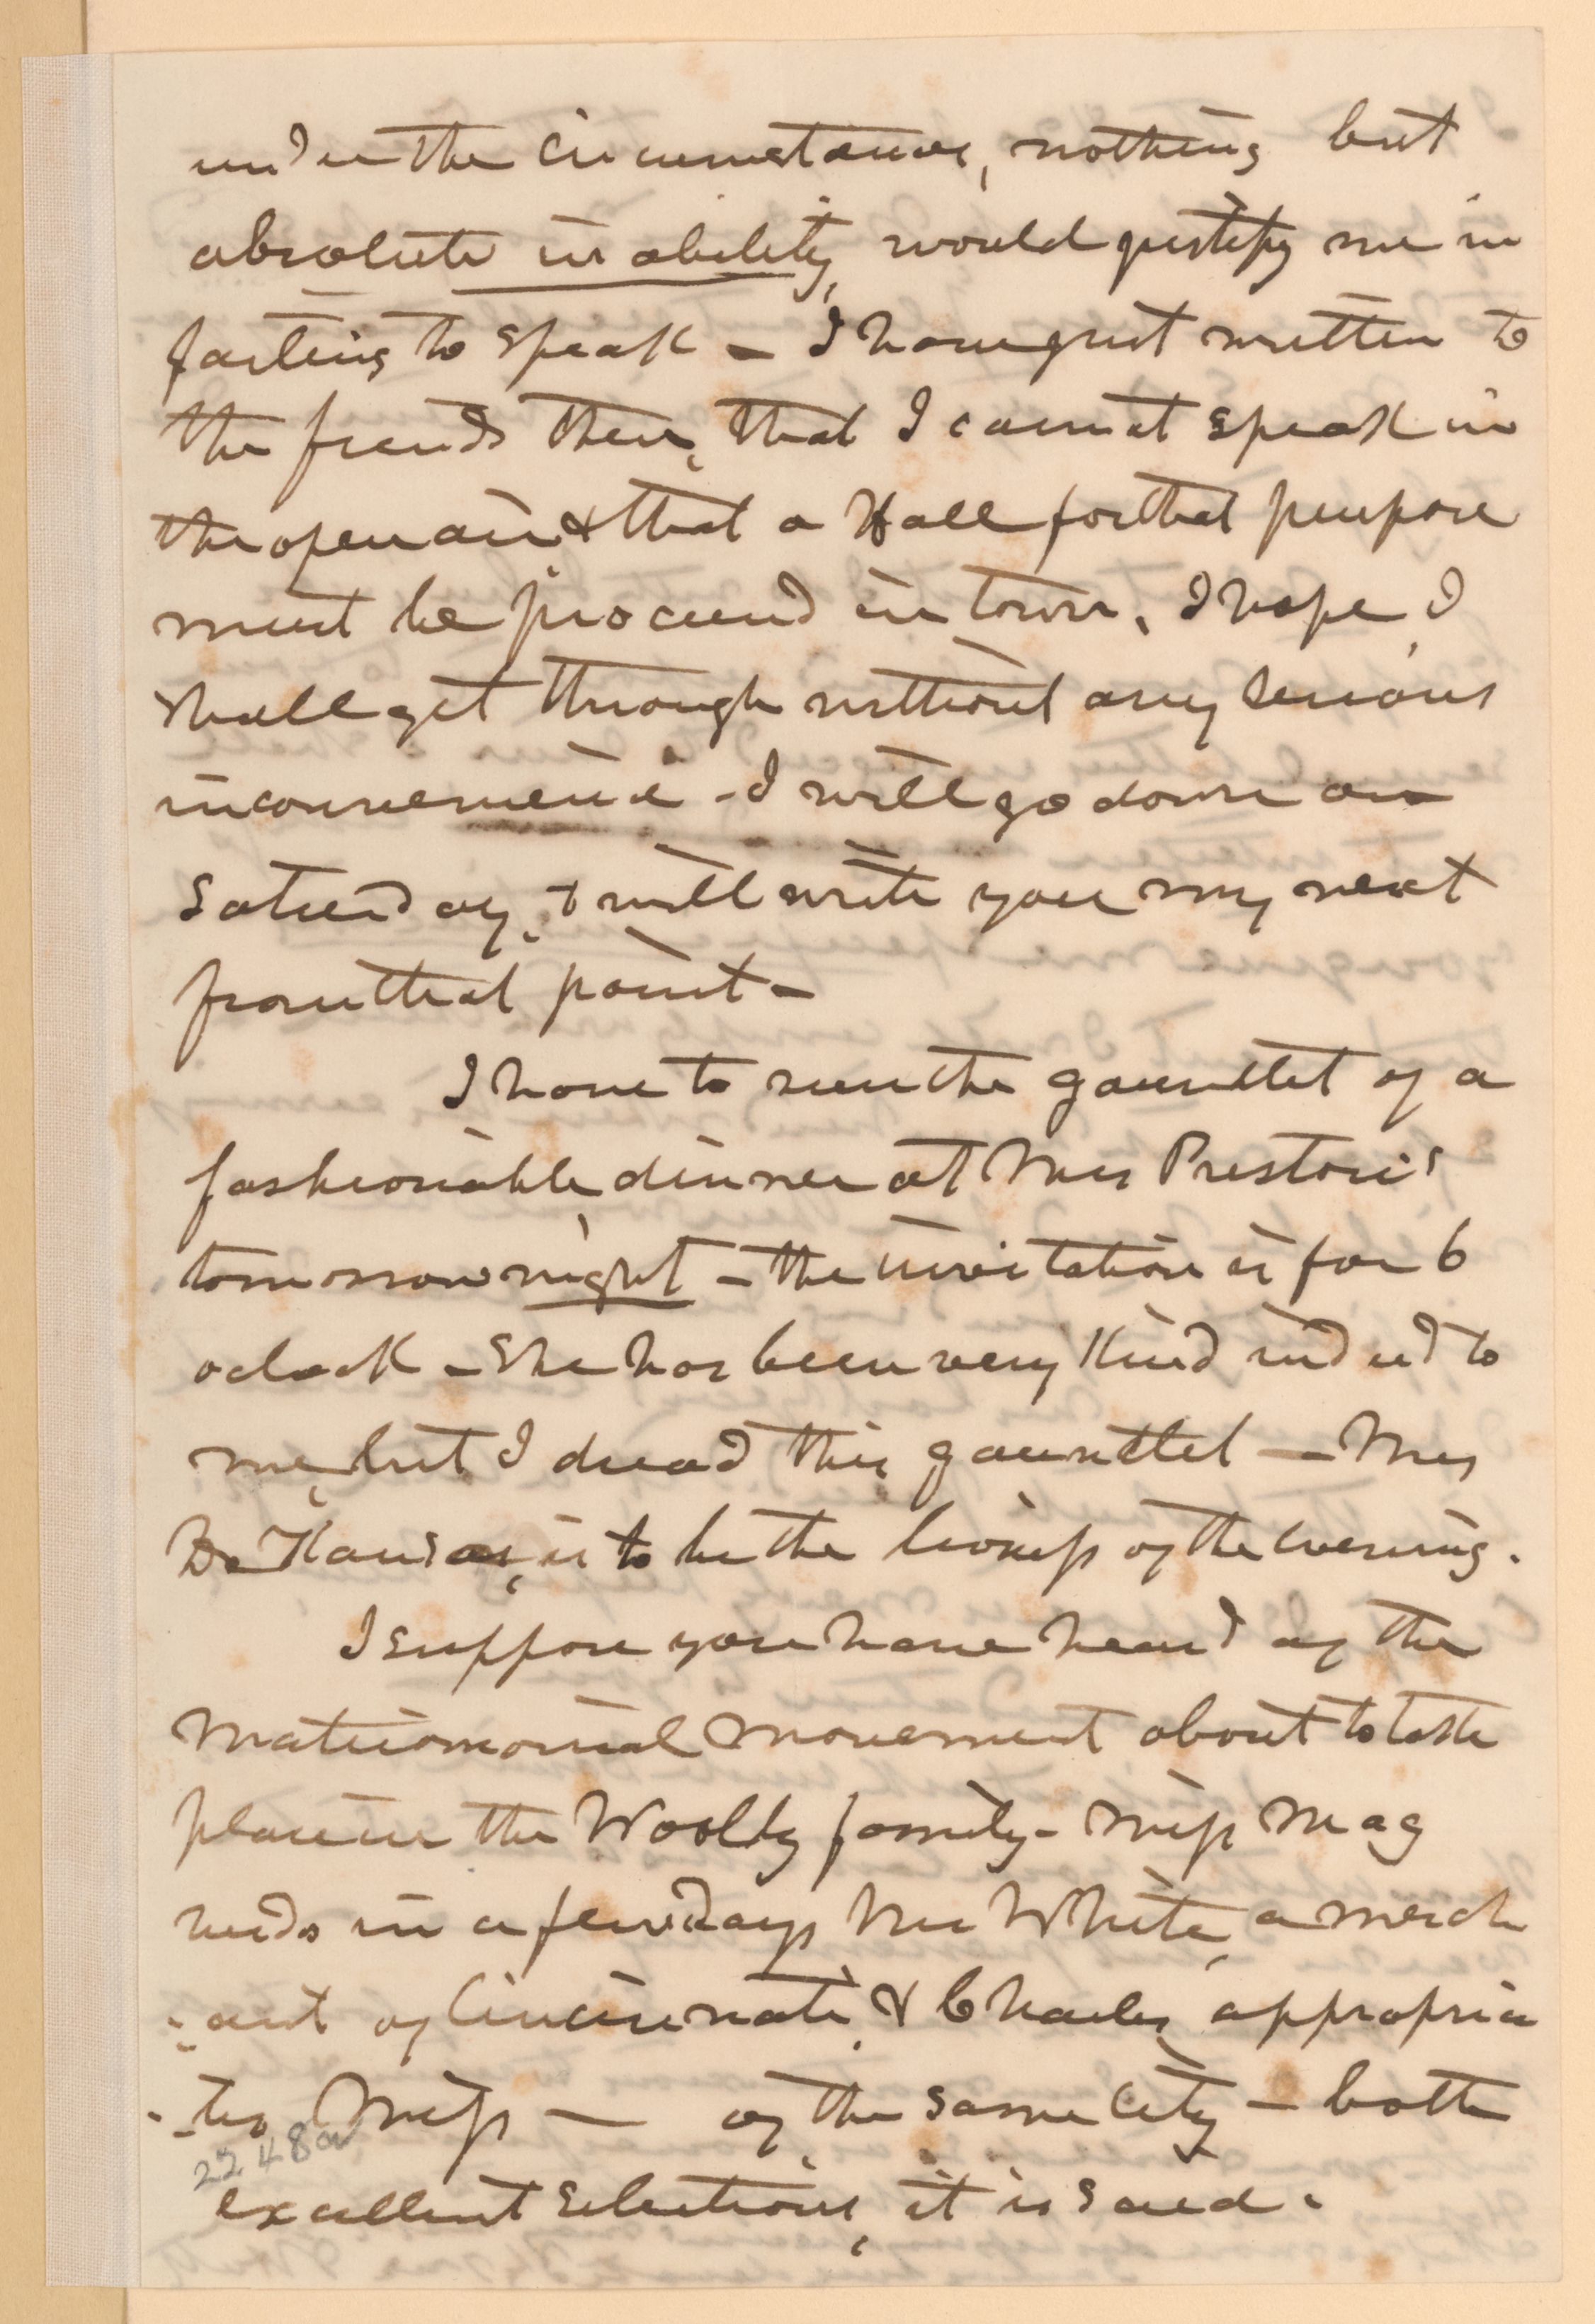 under the circumstances, nothing but
absolute inability, would justify me in
failing to speak – I have just written to
the friends there, that I cannot speak in
the open air & that a Hall for that purpose
must be procured in town. I hope I
shall get through without any serious
inconvenience – I will go down on
Saturday, & will write you my next
from that point –
I have to run the gauntlet of a
fashionable dinner at Mrs Preston's
tomorrow night – the invitation is for 6
oclock – She has been very kind indeed to
me, but I dread this gauntlet – Mrs
is to be the lioness of the evening.
I suppose you have heard of the
matrimonial movement about to take
place in the Woolly family – Miss Mag
weds in a few days Mr White, a merch
-ant of Cincinnati, & Charley appropria
-tes Miss — of the same City – both
excellent selections, it is said.
2248a